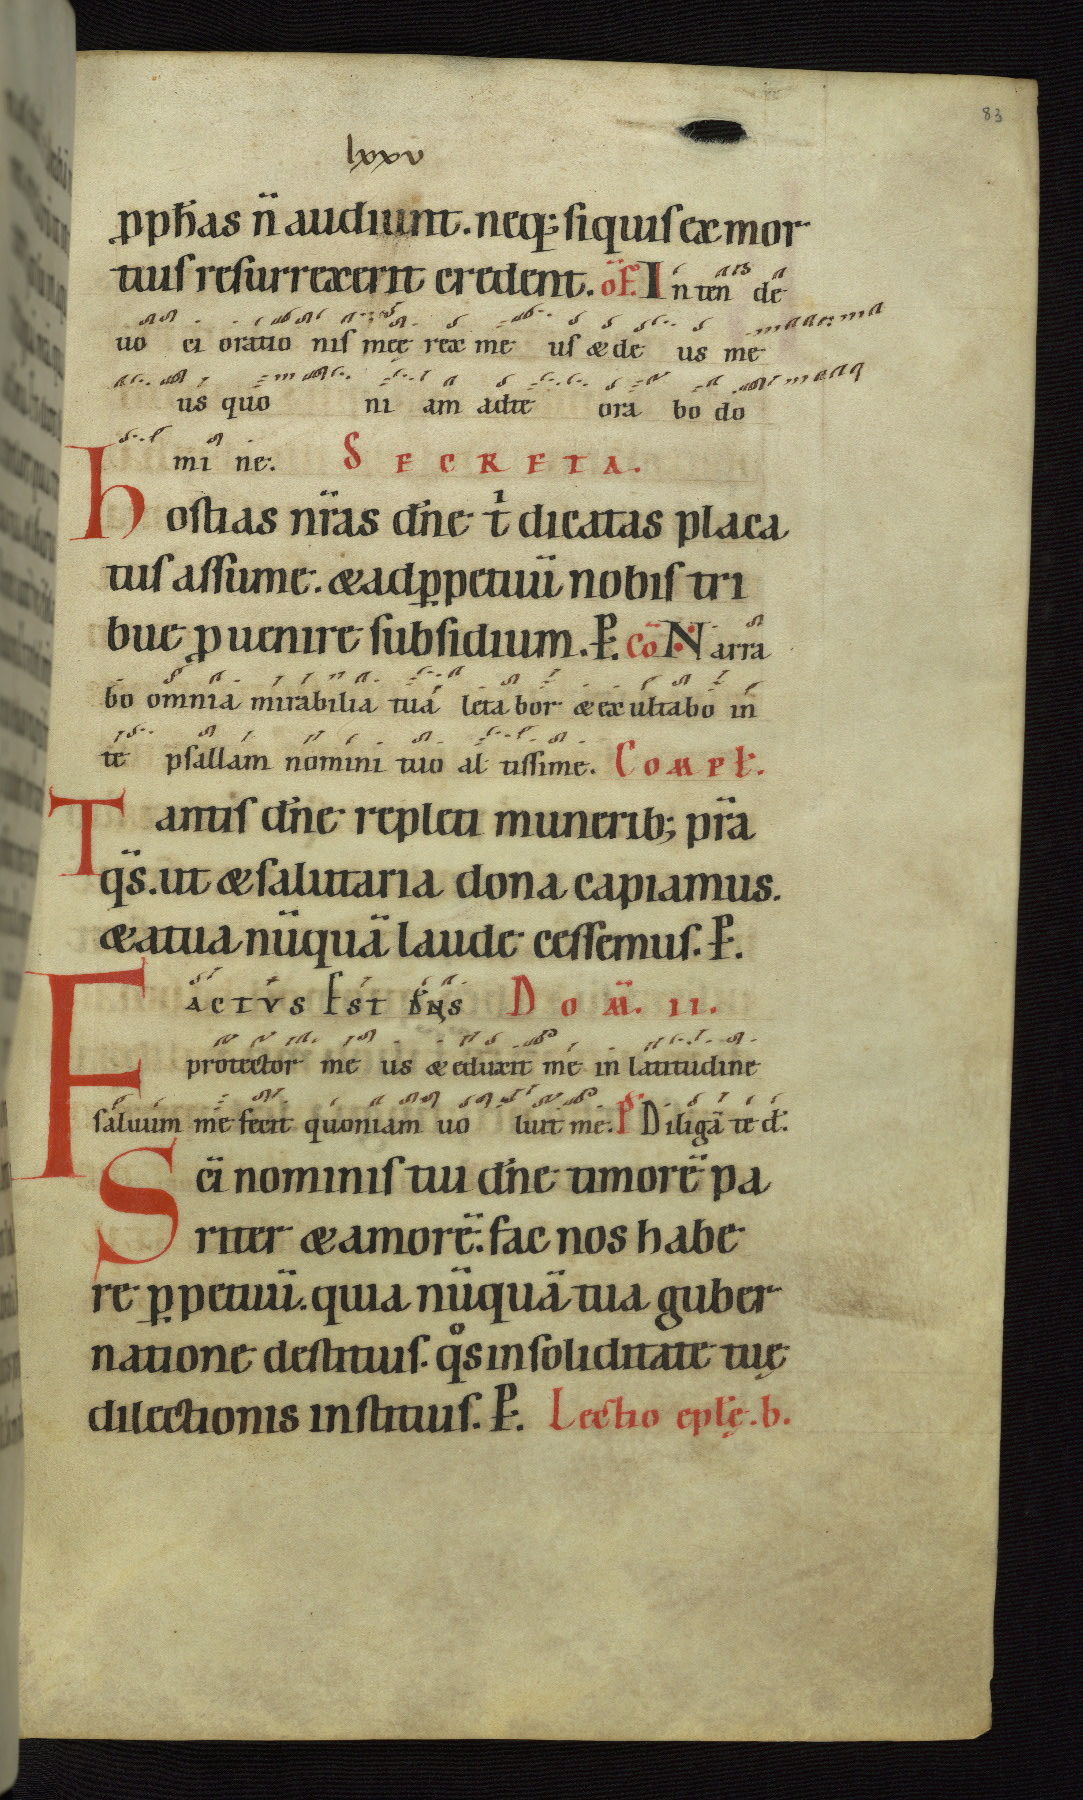 83
lxxv
ꝓph̄as n̄ audiunt. neq; si quis ex mor
tuis resurrexerit credent. of̄. Inten de
uo ci oratio nis meę rex me us & de us me
us quo ni am adte ora bo do
mi ne. SECRETA.
hostias nr̄as dn̄e tⁱ dicatas placa
tus assume. & ad ꝑpetuū nobis tri
bue ꝓuenire subsidium. P. cō Narra
bo omnia mirabilia tua leta bor & exultabo in
te psallam nomini tuo al tissime. Compł.
Tantis dn̄e repleti munerib; pr̄a
qs̄. ut & salutaria dona capiamus.
& a tua nūquā laude cessemus. P.
FACTVS EST DN̄S DOM̄. II.
protector me us & eduxit me in latitudine
saluum me fecit quoniam uo luit me. P̄ Diligā te d̄.
Sc̄i nominis tui dn̄e timorē pa
riter & amorē. fac nos habe
re ꝑpetuū. quia nūquā tua guber
natione destituis. qͦs in soliditate tuę
dilectionis instituis. P. Lectio epłę. b.